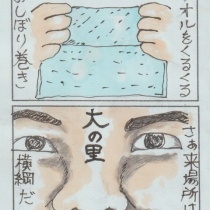 オルをくるくる
おしぼり巻き
大の里
さあ来場所は
横綱だ